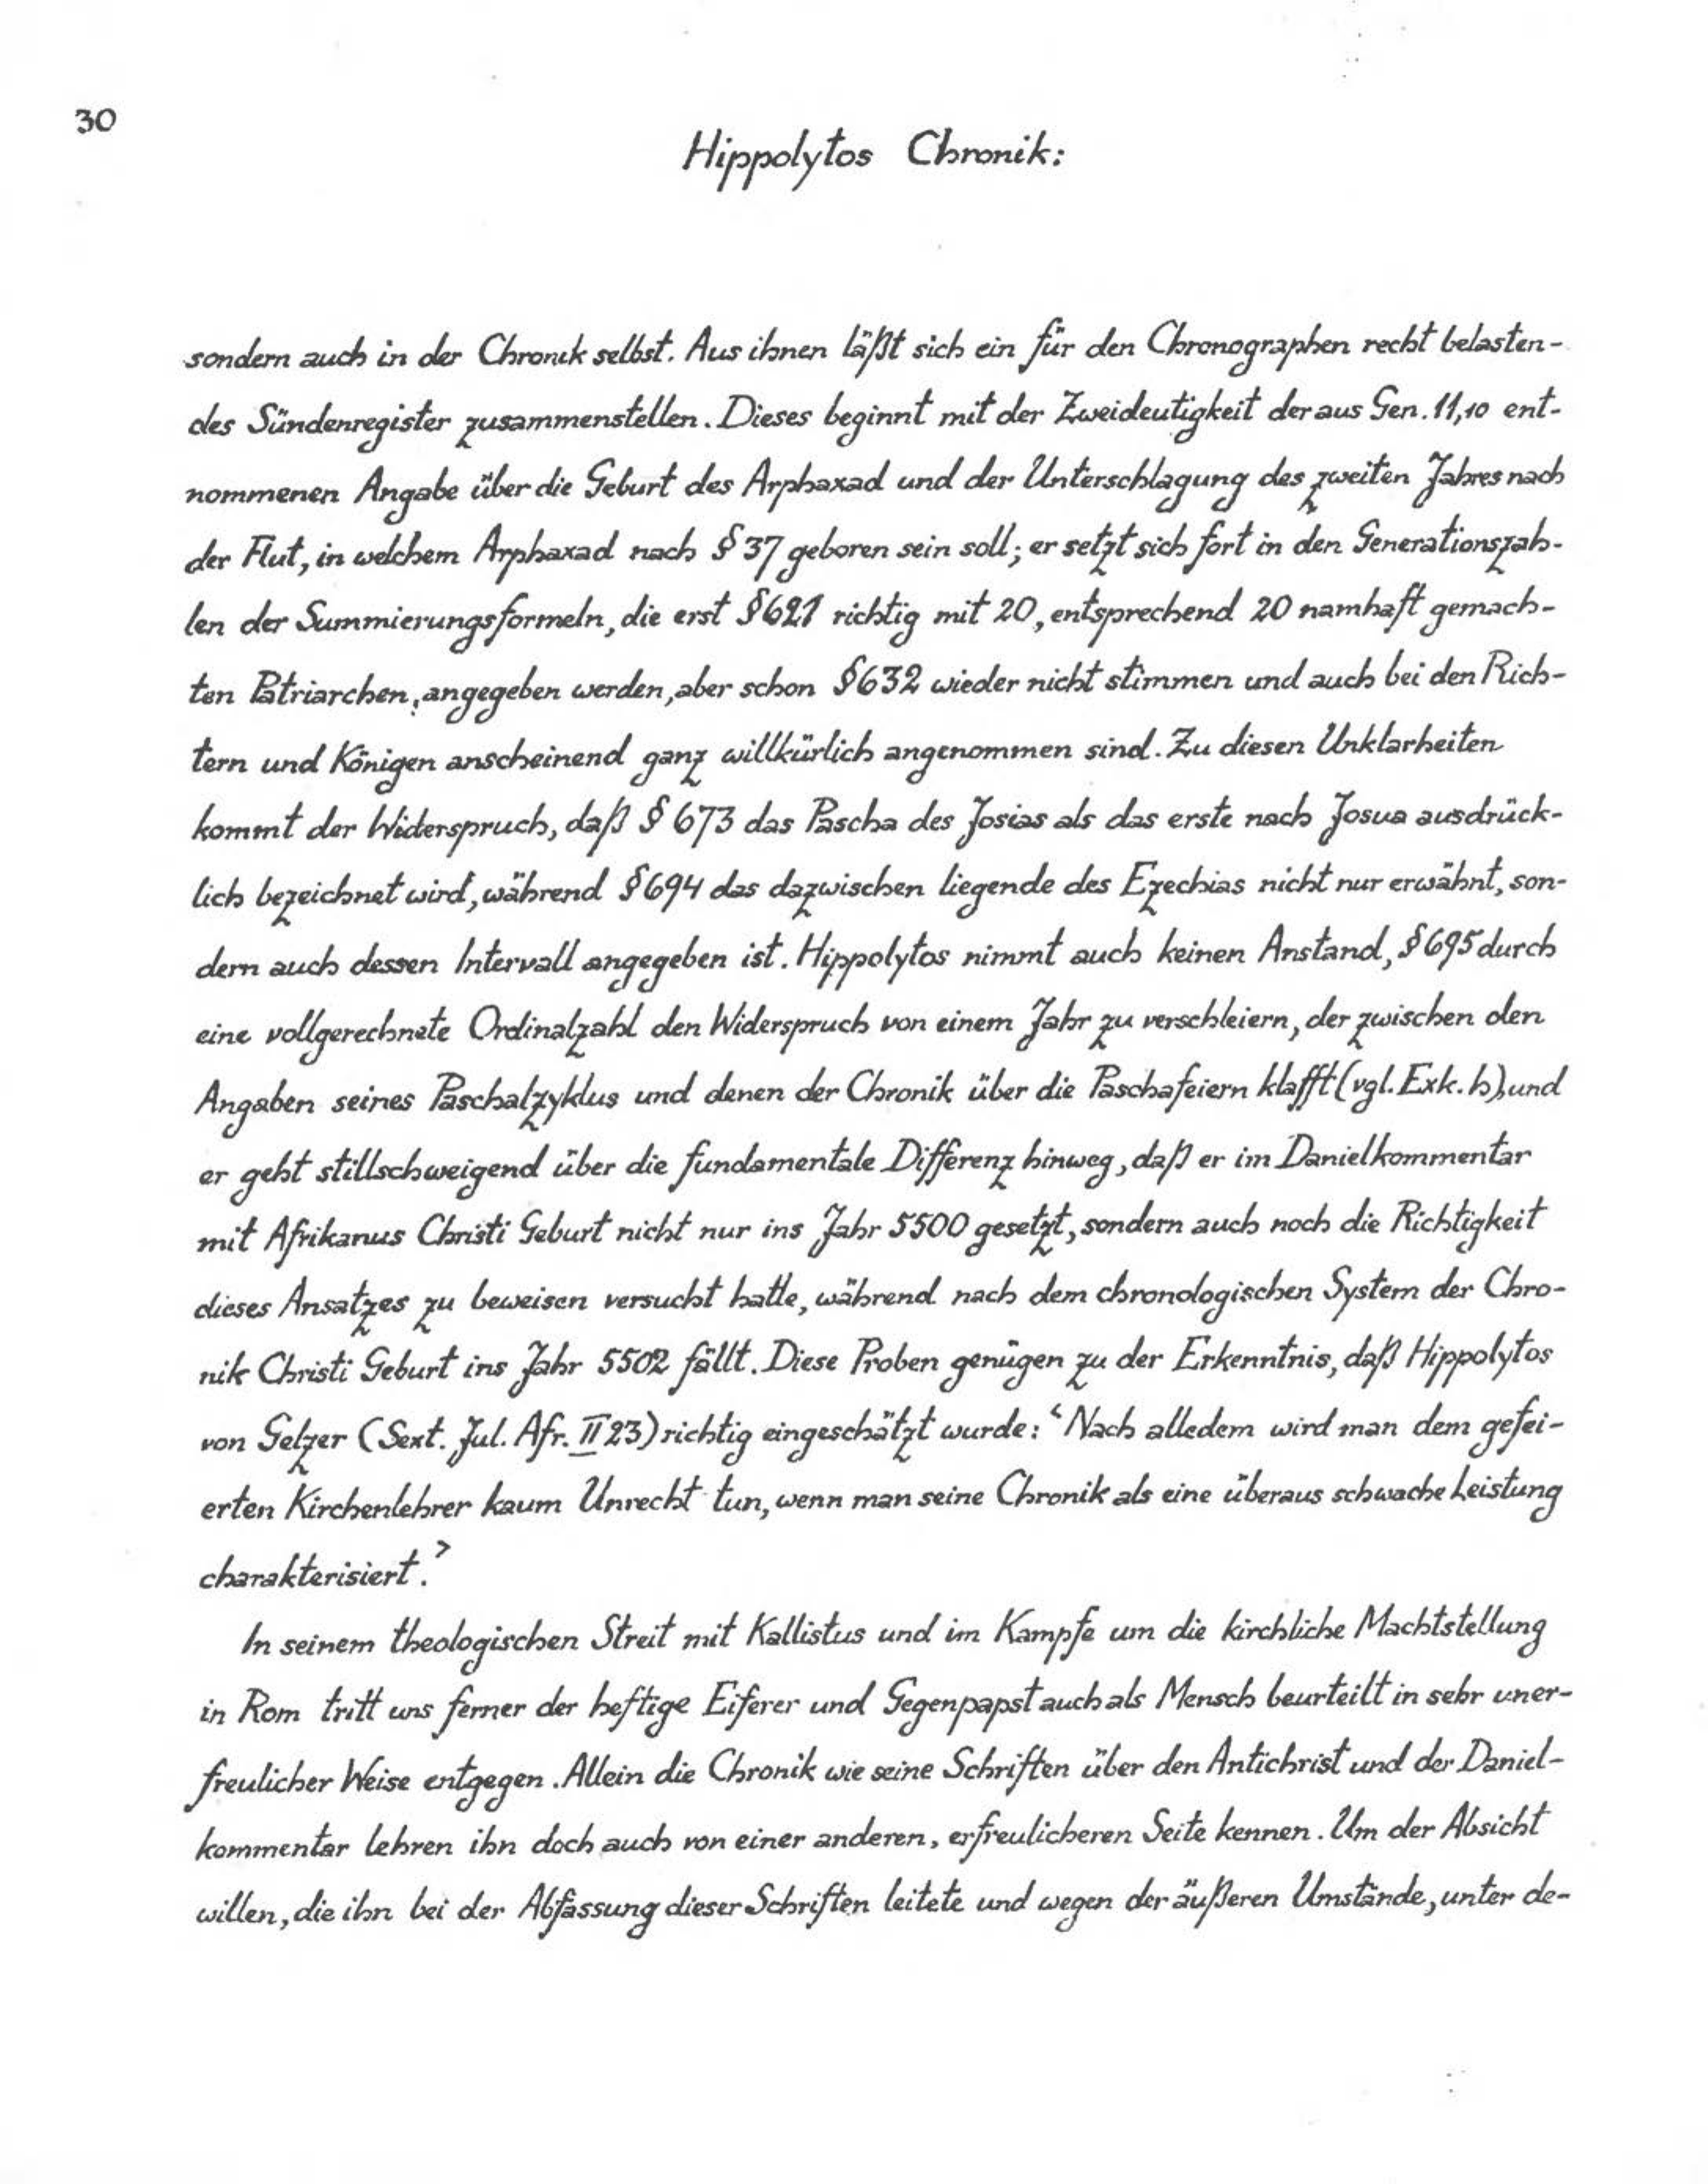 30
Hippolytos Chronik:
sondern auch in der Chronik selbst. Aus ihnen läßt sich ein für den Chronographen recht belasten-
des Sündenregister zusammenstellen. Dieses beginnt mit der Zweideutigkeit der aus Gen. 11,10 ent-
nommenen Angabe über die Geburt des Arphaxad und der Unterschlagung des zweiten Jahres nach
der Flut, in welchem Arphaxad nach § 37 geboren sein soll; er setzt sich fort in den Generationszah-
len der Summierungsformeln, die erst § 621 richtig mit 20, entsprechend 20 namhaft gemach-
ten Patriarchen, angegeben werden, aber schon § 632 wieder nicht stimmen und auch bei den Rich-
tern und Königen anscheinend ganz willkürlich angenommen sind. Zu diesen Unklarheiten
kommt der Widerspruch, daß § 673 das Pascha des Josias als das erste nach Josua ausdrück-
lich bezeichnet wird, während § 694 das dazwischen liegende des Ezechias nicht nur erwähnt, son-
dern auch dessen Intervall angegeben ist. Hippolytos nimmt auch keinen Anstand, § 695 durch
eine vollgerechnete Ordinalzahl den Widerspruch von einem Jahr zu verschleiern, der zwischen den
Angaben seines Paschalzyklus und denen der Chronik über die Paschafeiern klafft (vgl. Exk. h), und
er geht stillschweigend über die fundamentale Differenz hinweg, daß er im Danielkommentar
mit Afrikanus Christi Geburt nicht nur ins Jahr 5500 gesetzt, sondern auch noch die Richtigkeit
dieses Ansatzes zu beweisen versucht hatte, während nach dem chronologischen System der Chro-
nik Christi Geburt ins Jahr 5502 fällt. Diese Proben genügen zu der Erkenntnis, daß Hippolytos
von Gelzer (Sext. Jul. Afr. II 23) richtig eingeschätzt wurde: ‘Nach alledem wird man dem gefei-
erten Kirchenlehrer kaum Unrecht tun, wenn man seine Chronik als eine überaus schwache Leistung
charakterisiert.’
In seinem theologischen Streit mit Kallistus und im Kampfe um die kirchliche Machtstellung
in Rom tritt uns ferner der heftige Eiferer und Gegenpapst auch als Mensch beurteilt in sehr uner-
freulicher Weise entgegen. Allein die Chronik wie seine Schriften über den Antichrist und der Daniel-
kommentar lehren ihn doch auch von einer anderen, erfreulicheren Seite kennen. Um der Absicht
willen, die ihn bei der Abfassung dieser Schriften leitete und wegen der äußeren Umstände, unter de-